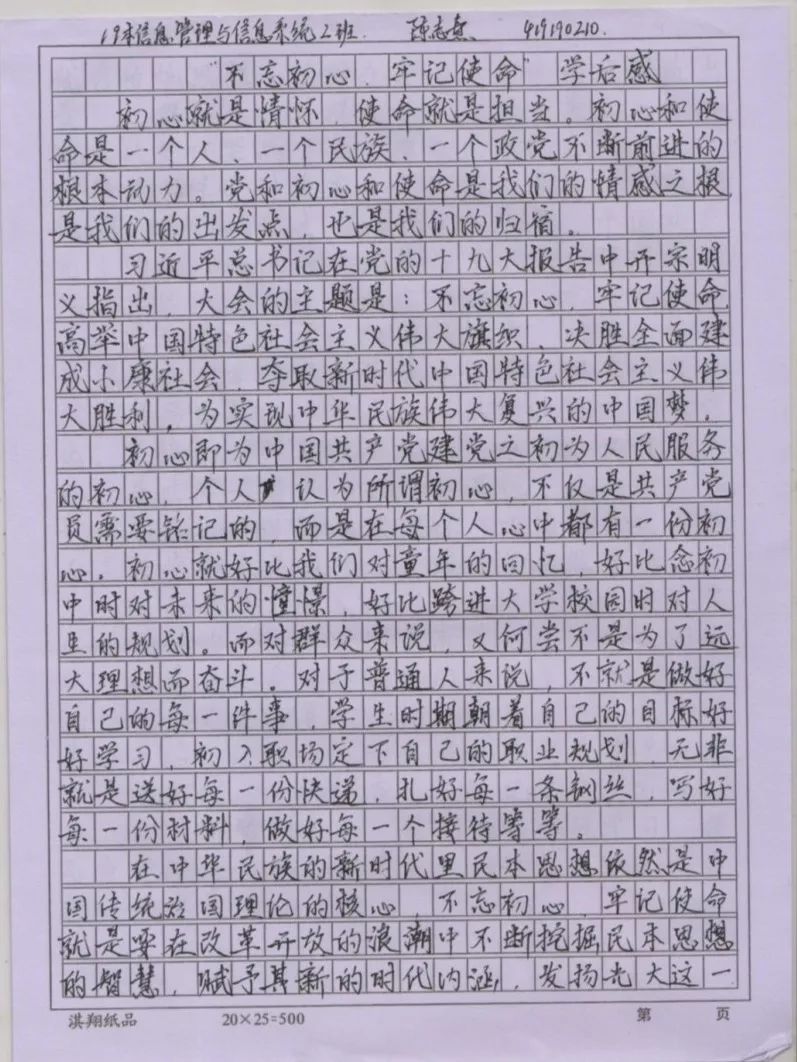 19本信息管理与信息系统2班. 陈志熹 419190210.
"不忘初心、牢记使命"学后感
初心就是情怀,使命就是担当。初心和使
命是一个人、一个民族、一个政党不断前进的
根本动力。党和初心和使命是我们的情感之根
是我们的出发点,也是我们的归宿。
习近平总书记在党的十九大报告中开宗明
义指出,大会的主题是:不忘初心,牢记使命,
高举中国特色社会主义伟大旗织,决胜全面建
成小康社会,夺取新时代中国特色社会主义伟
大胜利,为实现中华民族伟大复兴的中国梦,
初心即为中国共产党建党之初为人民服务
的初心,个人认为所谓初心,不仅是共产党
员需要铭记的,而是在每个人心中都有一份初
心。初心就好比我们对童年的回忆,好比念初
中时对未来的憧憬,好比跨进大学校园时对人
生的规划。而对群众来说,又何尝不是为了远
大理想而奋斗。对于普通人来说,不就是做好
自己的每一件事,学生时期朝着自己的目标好
好学习,初入职场定下自己的职业规划,无非
就是送好每一份快递,扎好每一条钢丝,写好
每一份材料,做好每一个接待等等。
在中华民族的新时代里民本思想依然是中
国传统治国理论的核心,不忘初心,牢记使命
就是要在改革开放的浪潮中不断挖掘民本思想
的智慧,赋予其新的时代内涵,发扬光大这一
淇翔纸品 20×25=500 第 页